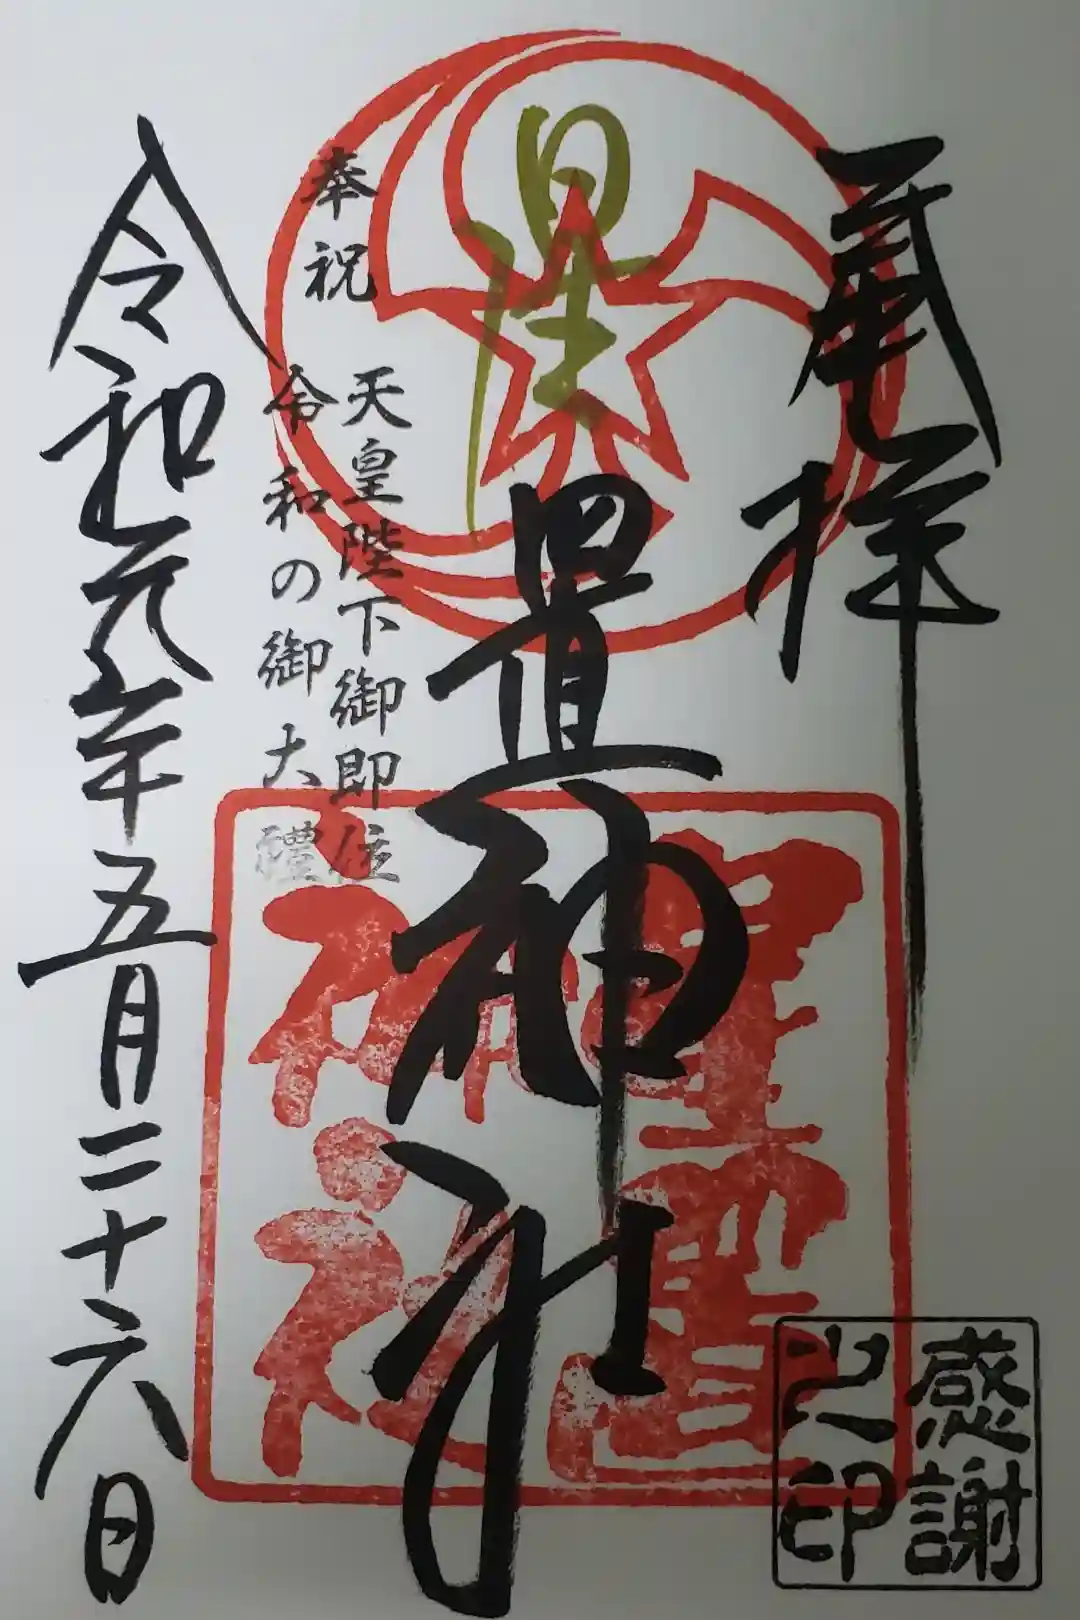 奉拝
星置神社
星置
神社
奉祝
天皇陛下御即位
令和の御大禮
令和元年五月二十六日
感謝
之印